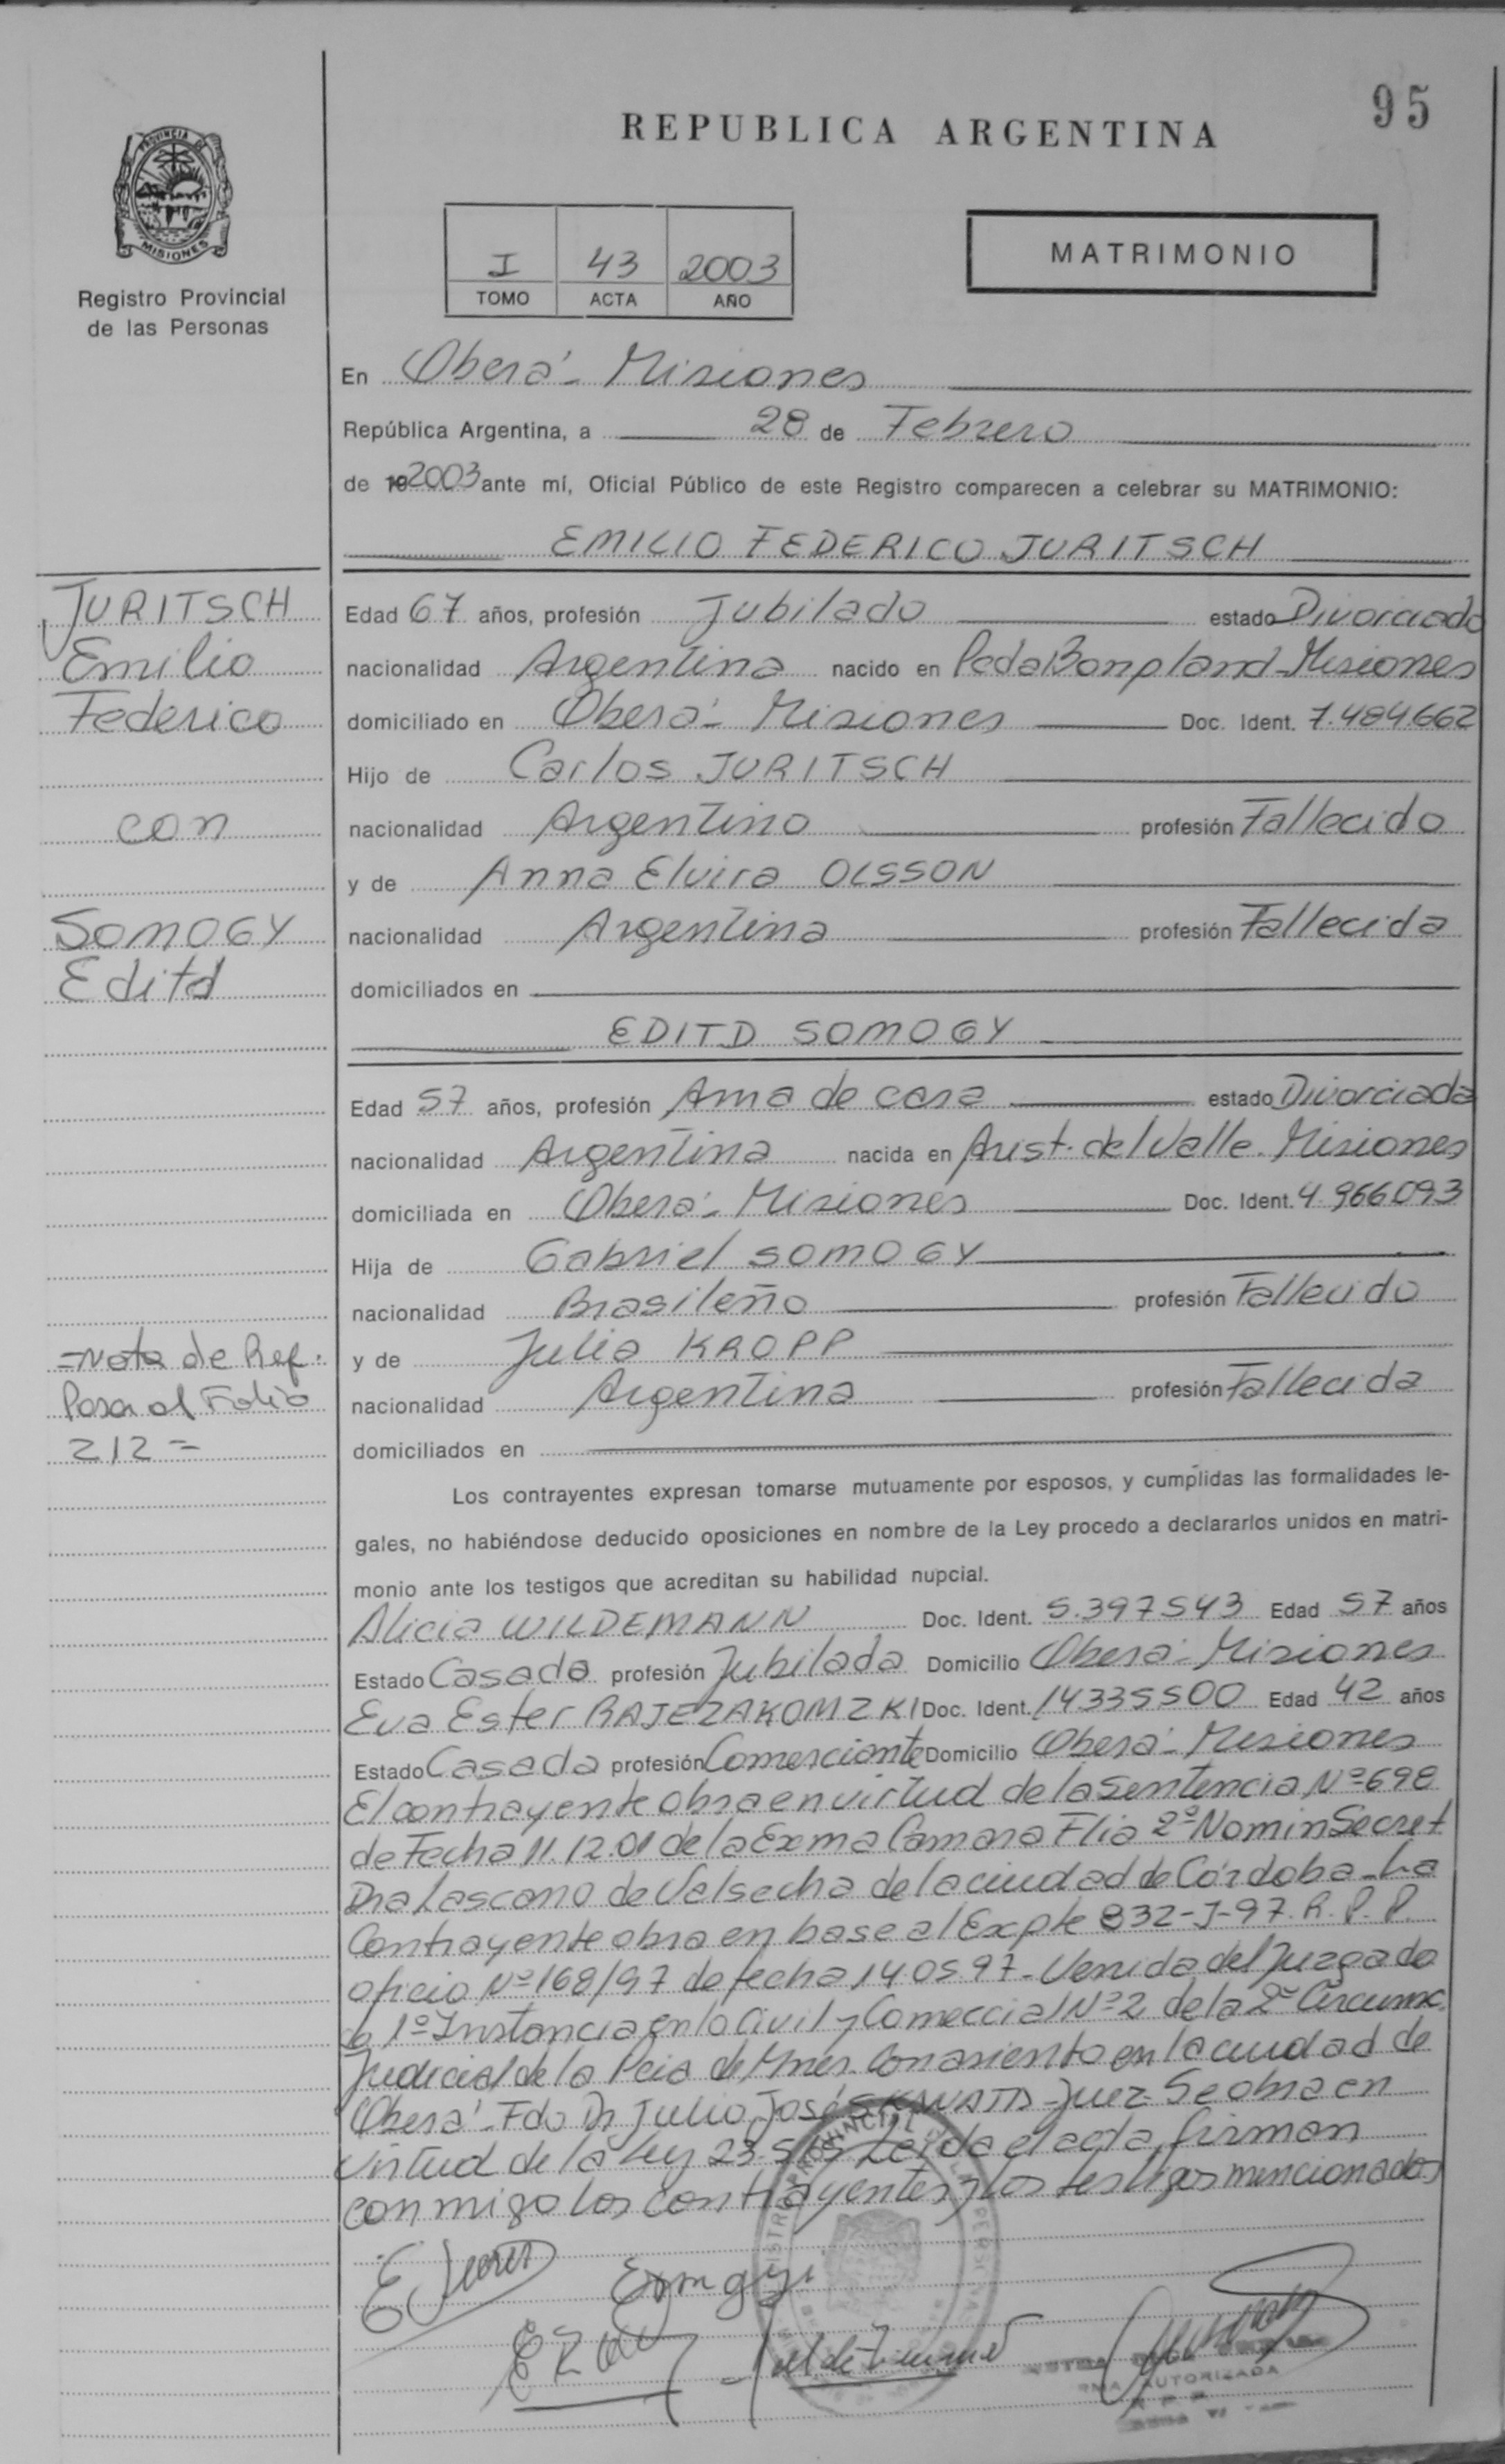 95
REPUBLICA ARGENTINA
PROVINCIA DE
MISIONES
Registro Provincial
de las Personas
I 43 2003
TOMO ACTA AÑO
MATRIMONIO
En Oberá - Misiones
República Argentina, a 28 de Febrero
de 19 2003 ante mí, Oficial Público de este Registro comparecen a celebrar su MATRIMONIO:
EMILIO FEDERICO JURITSCH
JURITSCH
Emilio
Federico
con
SOMOGY
Editd
Edad 67 años, profesión Jubilado estado Divorciado
nacionalidad Argentina nacido en Pcda Bonpland - Misiones
domiciliado en Oberá - Misiones Doc. Ident. 7.484.662
Hijo de Carlos JURITSCH
nacionalidad Argentino profesión Fallecido
y de Anna Elvira OLSSON
nacionalidad Argentina profesión Fallecida
domiciliados en
EDITD SOMOGY
Edad 57 años, profesión Ama de casa estado Divorciada
nacionalidad Argentina nacida en Arist. del Valle. Misiones
domiciliada en Oberá - Misiones Doc. Ident. 4.966.093
Hija de Gabriel SOMOGY
nacionalidad Brasileño profesión Fallecido
y de Julia KROPP
nacionalidad Argentina profesión Fallecida
domiciliados en
=Nota de Ref.
Pasa al Folio
212=
Los contrayentes expresan tomarse mutuamente por esposos, y cumplidas las formalidades le-
gales, no habiéndose deducido oposiciones en nombre de la Ley procedo a declararlos unidos en matri-
monio ante los testigos que acreditan su habilidad nupcial.
Alicia WILDEMANN Doc. Ident. 5.397543 Edad 57 años
Estado Casada profesión Jubilada Domicilio Oberá - Misiones
Eva Ester RAJEZAKOMZKI Doc. Ident. 14335500 Edad 42 años
Estado Casada profesión Comerciante Domicilio Oberá - Misiones
El contrayente obra en virtud de la Sentencia Nº 698
de Fecha 11.12.01 de la Exma Camara Flia 2º Nomin Secret
Dra Lascano de Valsecha de la ciudad de Córdoba - La
Contrayente obra en base al Expte 832-J-97. R. P. P.
oficio Nº 168/97 de fecha 14.05.97 - Venida del Juzgado
de 1º Instancia en lo Civil y Comercial Nº 2 de la 2º Circunc.
Judicial de la Pcia de Mnes. Con asiento en la ciudad de
Oberá - Fdo Dr Julio José - Juez - Se obra en
virtud de la Ley 23.515 Leida el acta, firman
conmigo los contrayentes y los testigos mencionados
AUTORIZADA